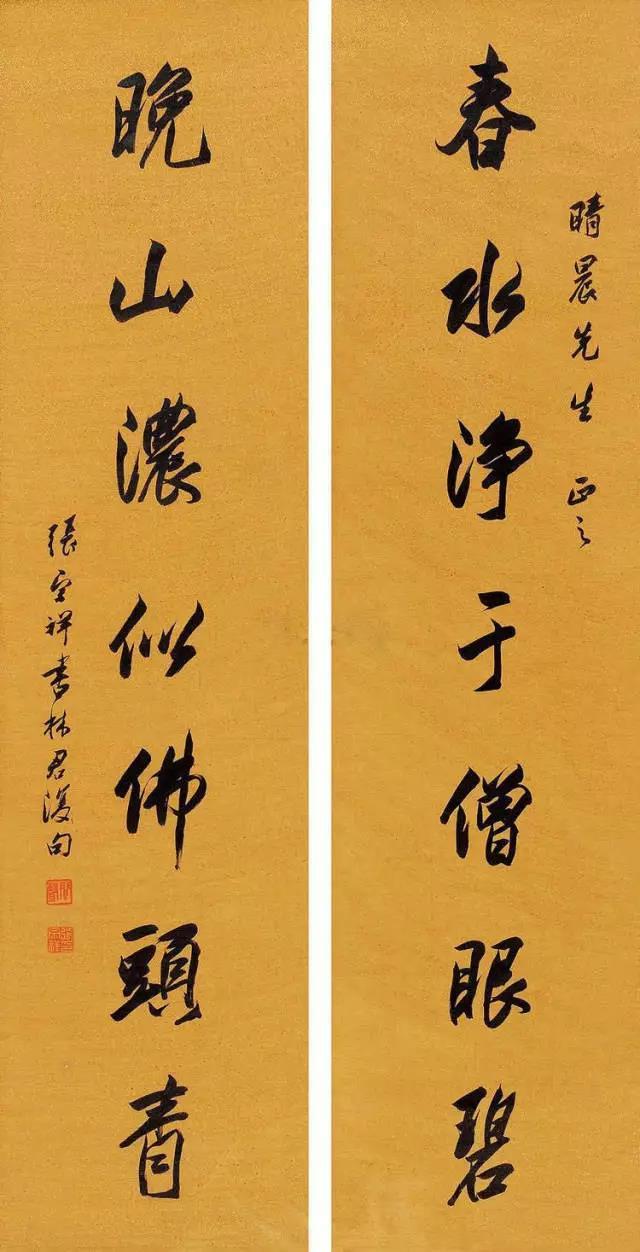 晴晨先生 正之
春水浄于僧眼碧
晚山濃似佛頭青
張宗祥書林君復句